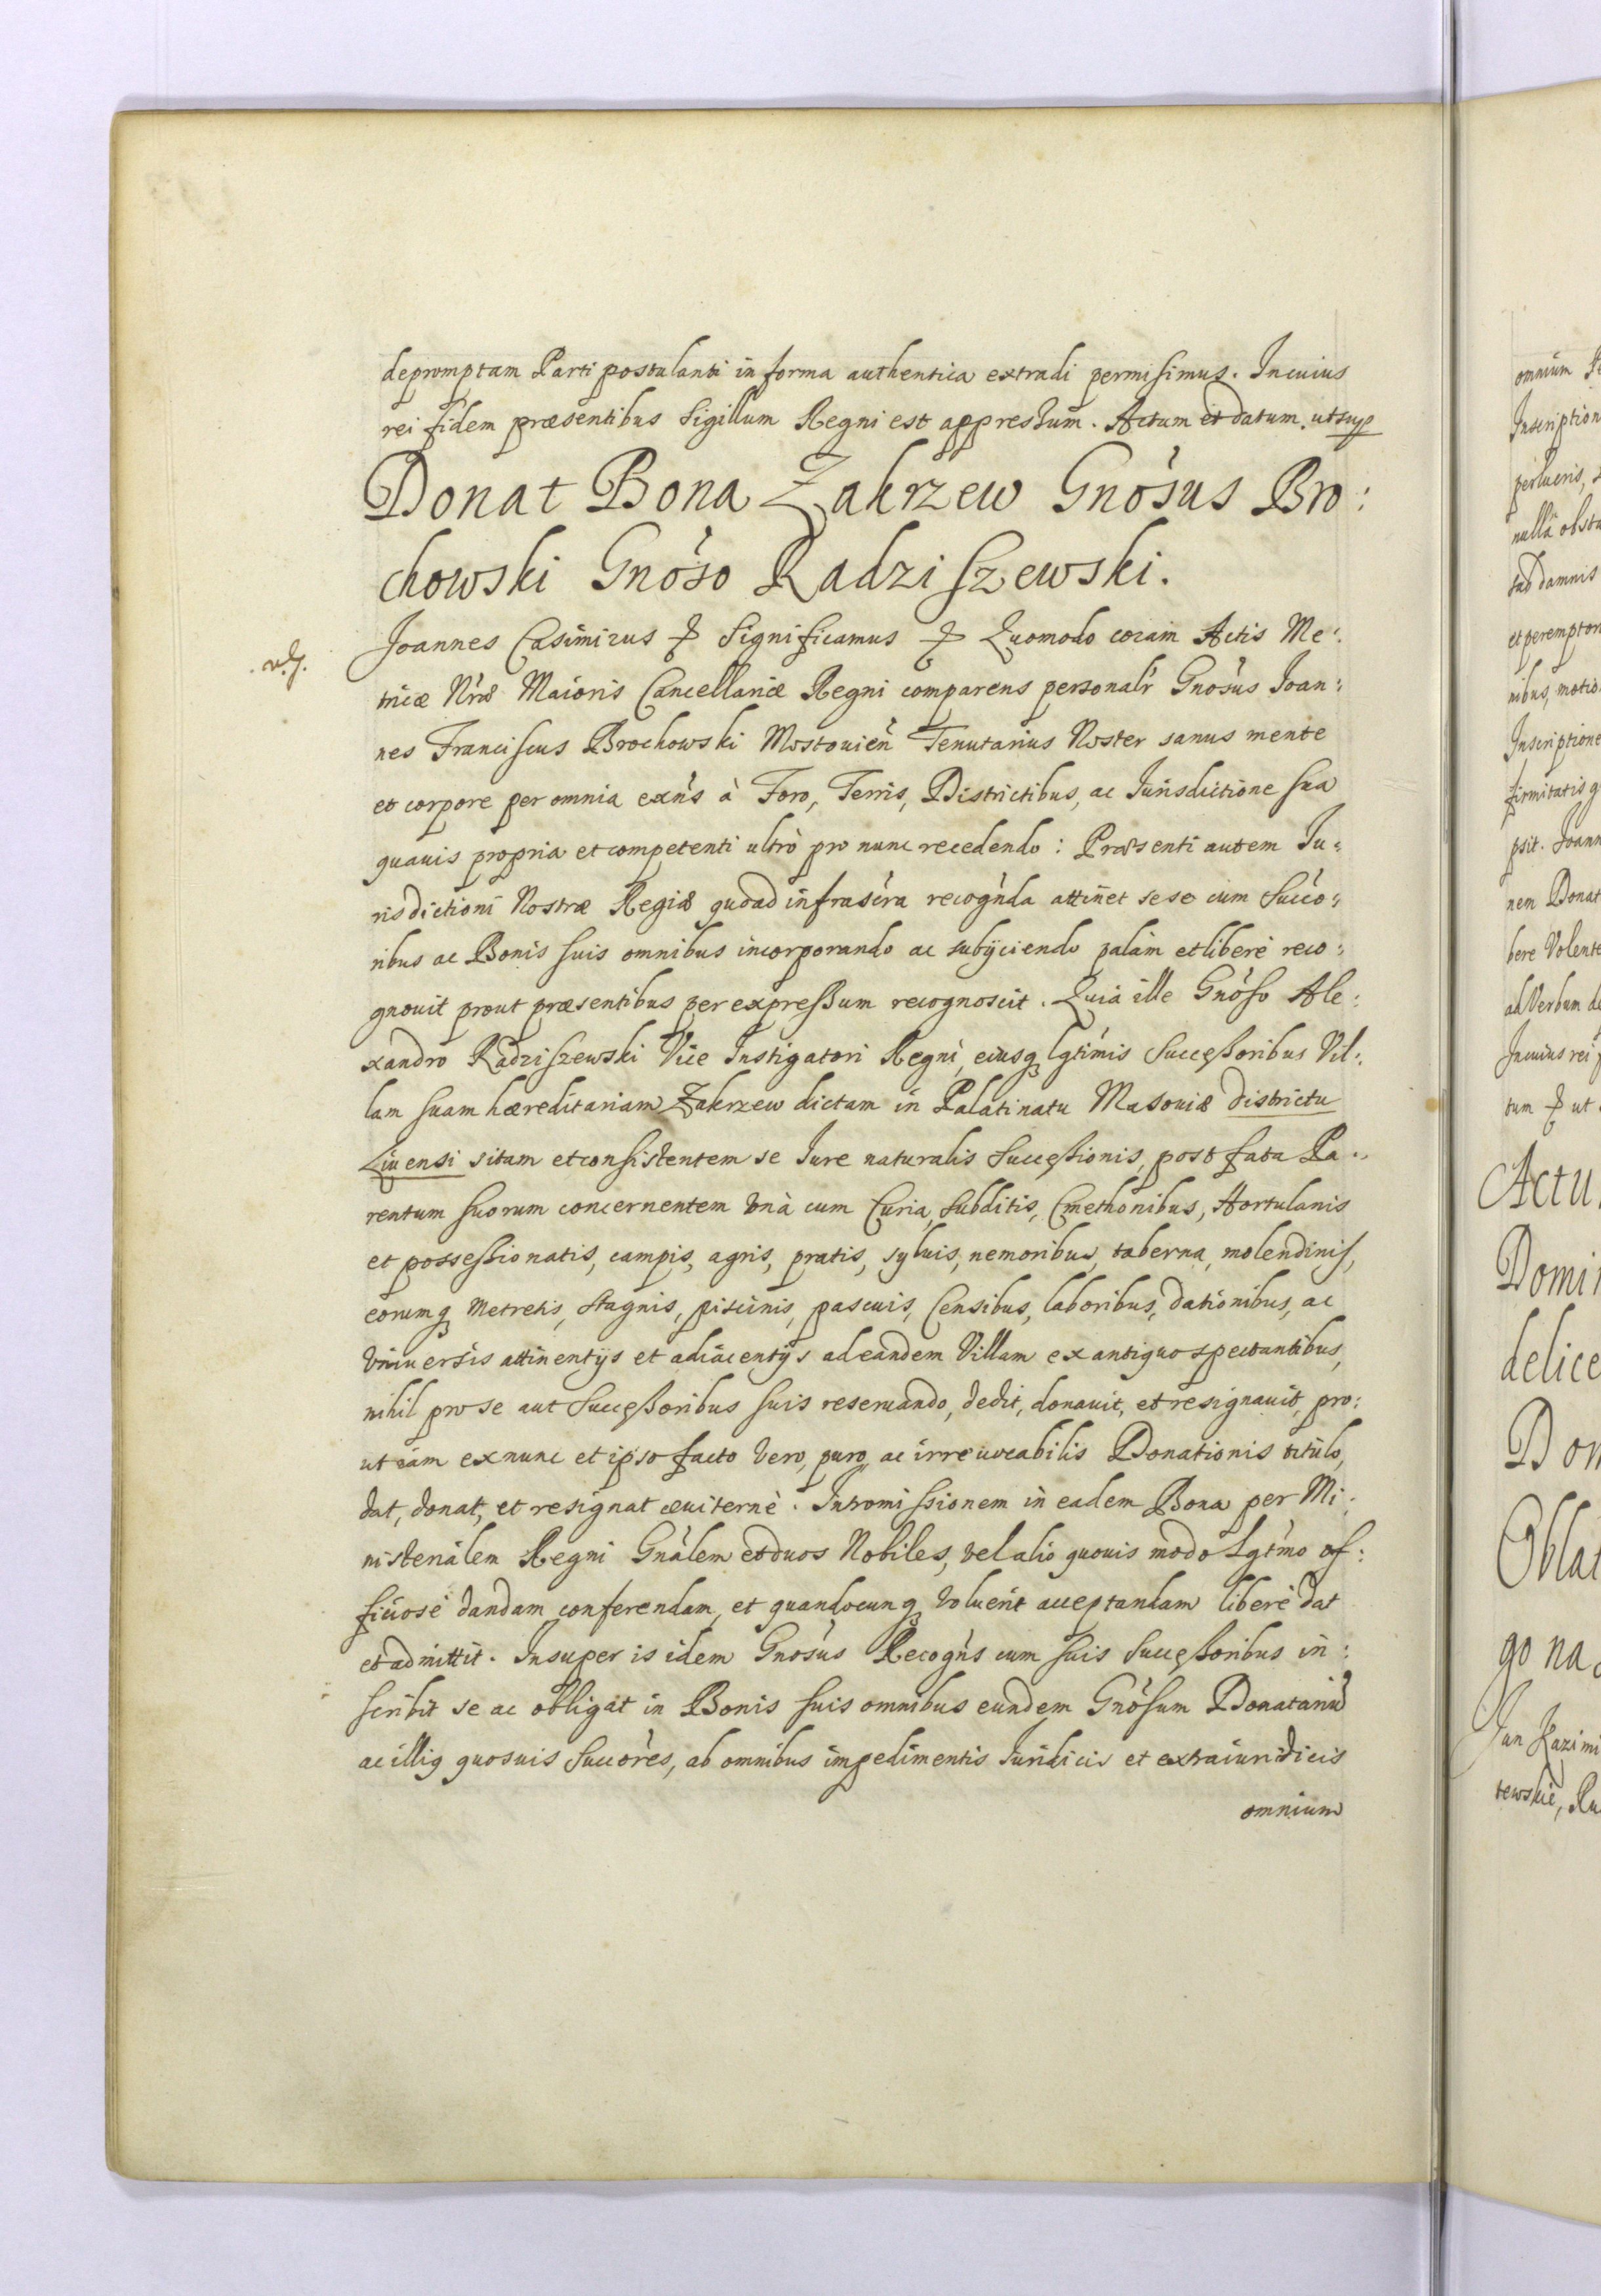 depromptam Parti postulanti in forma authentica extradi permisimus. In cuius
rei fidem præsentibus Sigillum Regni est appressum. Actum et datum ut sup
Donat Bona Zakrzew Gnosus Bro:
chowski Gnoso Radziszewski.
Joannes Casimirus & Significamus & Quomodo coram Actis Me:
tricæ Nræ Maioris Cancellariæ Regni comparens personalr Gnosus Joan:
nes Franciscus Brochowski Mostouien Tenutarius Noster sanus mente
et corpore per omnia exns à Foro, Terris, Districtibus, ac Jurisdictione sua
quauis propria et competenti ultrò pro nunc recedendo: Præsenti autem Ju:
risdictioni Nostræ Regiæ quoad infrascra recognda attinet sese cum Succo:
ribus ac Bonis suis omnibus incorporando ac subijciendo palàm et liberè reco:
gnouit prout præsentibus per expressum recognoscit. Quia ille Gnoso Ale:
xandro Radziszewski Vice Instigatori Regni, eiusq Lgtimis Successoribus Vil:
lam suam hæreditariam Zakrzew dictam in Palatinatu Masouiæ districtu
Liuensi sitam et consistentem se Jure naturalis Successionis, post fata Pa:
rentum suorum concernentem vnà cum Curia, subditis, Cmethonibus, Hortulanis
et possessionatis, campis, agris, pratis, syluis, nemoribus, taberna, molendinis,
eorumq metretis, stagnis, piscinis, pascuis, Censibus, laboribus, dationibus, ac
Vniuersis attinentijs et adiacentijs ad eandem Villam ex antiquo spectantibus,
nihil pro se aut Successoribus suis reseruando, dedit, donauit, et resignauit, pro:
ut iam ex nunc et ipso facto vero, puro, ac irreuocabilis Donationis titulo,
dat, donat, et resignat æuiternè. Intromissionem in eadem Bona per Mi:
nisterialem Regni Gnalem et duos Nobiles, vel alio quouis modo Lgtmo of:
ficiosè dandam conferendam, et quandocunq voluerit acceptandam liberè dat
et admittit. Insuper is idem Gnosus Recogns cum suis Successoribus in:
scribit se ac obligat in Bonis suis omnibus eundem Gnosum Donatariu
ac illig quosuis Succores, ab omnibus impedimentis Juridicis et extraiuridicis
omnium
omnium
Inscription
nulla
sub damnis
et peremptor
nibus, motio
Inscriptione
firmitatis
psit. Joann
nem Donat
bere Volente
ad Verbum de
In cuius rei
tum & ut
Actu
Domi
delice
Don
Oblat
go na
Jan Kazimi
tewskie, Ru